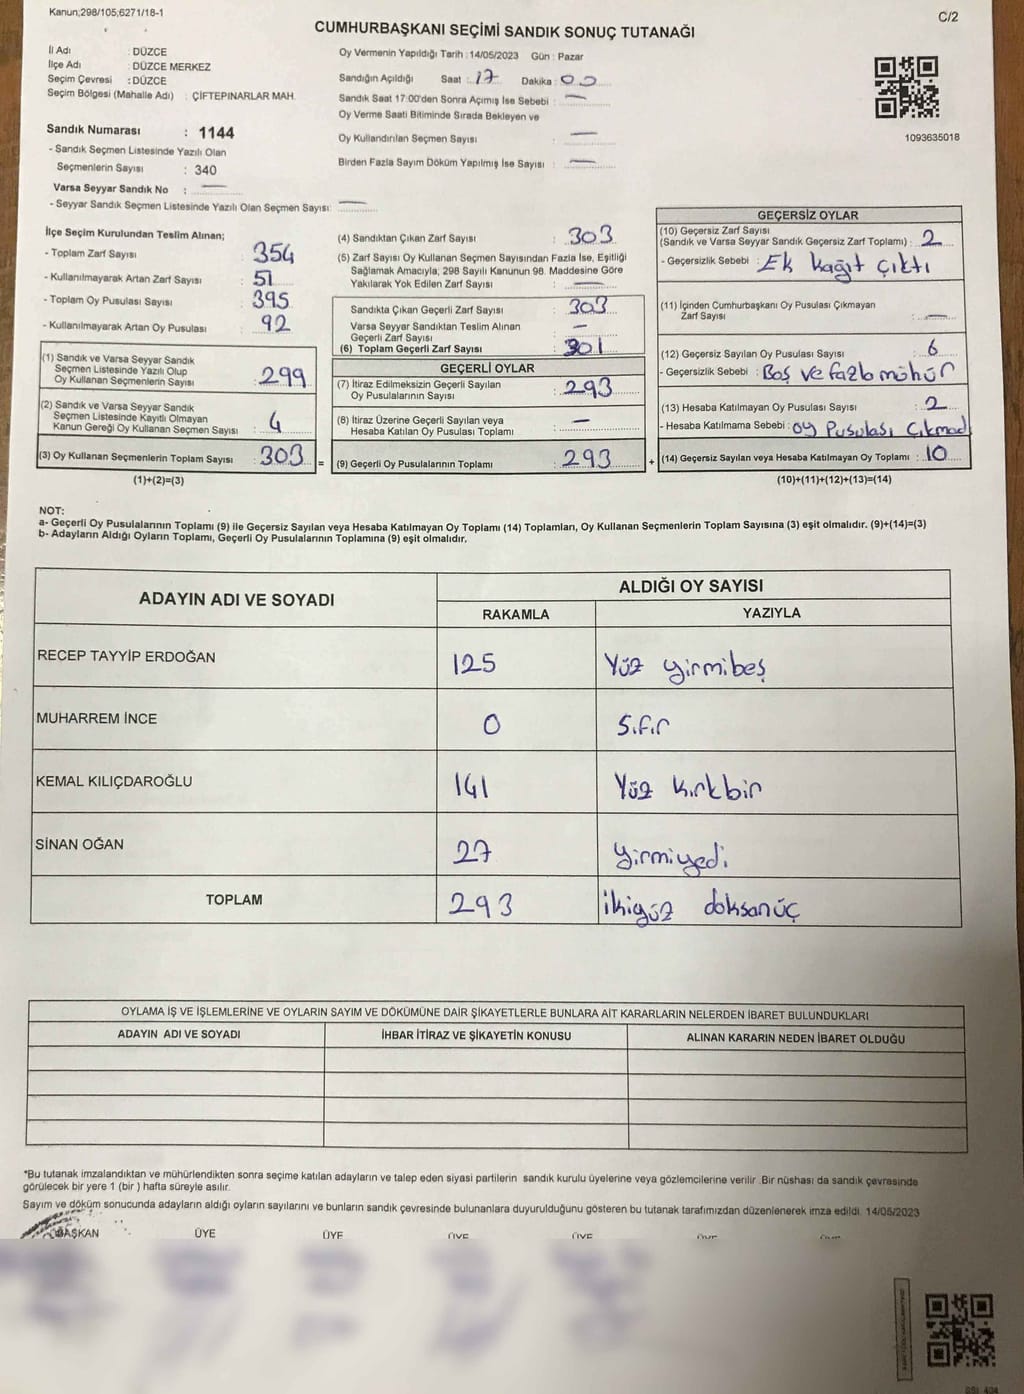 Kanun;298/105;6271/18-1
C/2
CUMHURBAŞKANI SEÇİMİ SANDIK SONUÇ TUTANAĞI
İl Adı : DÜZCE
İlçe Adı : DÜZCE MERKEZ
Seçim Çevresi : DÜZCE
Seçim Bölgesi (Mahalle Adı) : ÇİFTEPINARLAR MAH.
Sandık Numarası : 1144
- Sandık Seçmen Listesinde Yazılı Olan
Seçmenlerin Sayısı : 340
Varsa Seyyar Sandık No : —
- Seyyar Sandık Seçmen Listesinde Yazılı Olan Seçmen Sayısı: —
Oy Vermenin Yapıldığı Tarih : 14/05/2023 Gün : Pazar
Sandığın Açıldığı Saat : 17 Dakika : 00
Sandık Saat 17:00'den Sonra Açımış İse Sebebi : —
Oy Verme Saati Bitiminde Sırada Bekleyen ve
Oy Kullandırılan Seçmen Sayısı : —
Birden Fazla Sayım Döküm Yapılmış İse Sayısı : —
1093635018
İlçe Seçim Kurulundan Teslim Alınan;
- Toplam Zarf Sayısı : 354
- Kullanılmayarak Artan Zarf Sayısı : 51
- Toplam Oy Pusulası Sayısı : 395
- Kullanılmayarak Artan Oy Pusulası : 92
(1) Sandık ve Varsa Seyyar Sandık
Seçmen Listesinde Yazılı Olup
Oy Kullanan Seçmenlerin Sayısı : 299
(2) Sandık ve Varsa Seyyar Sandık
Seçmen Listesinde Kayıtlı Olmayan
Kanun Gereği Oy Kullanan Seçmen Sayısı : 4
(3) Oy Kullanan Seçmenlerin Toplam Sayısı : 303 =
(1)+(2)=(3)
(4) Sandıktan Çıkan Zarf Sayısı : 303
(5) Zarf Sayısı Oy Kullanan Seçmen Sayısından Fazla İse, Eşitliği
Sağlamak Amacıyla, 298 Sayılı Kanunun 98. Maddesine Göre
Yakılarak Yok Edilen Zarf Sayısı : —
Sandıkta Çıkan Geçerli Zarf Sayısı : 303
Varsa Seyyar Sandıktan Teslim Alınan
Geçerli Zarf Sayısı : —
(6) Toplam Geçerli Zarf Sayısı : 301
GEÇERLİ OYLAR
(7) İtiraz Edilmeksizin Geçerli Sayılan
Oy Pusulalarının Sayısı : 293
(8) İtiraz Üzerine Geçerli Sayılan veya
Hesaba Katılan Oy Pusulası Toplamı : —
(9) Geçerli Oy Pusulalarının Toplamı : 293 +
GEÇERSİZ OYLAR
(10) Geçersiz Zarf Sayısı
(Sandık ve Varsa Seyyar Sandık Geçersiz Zarf Toplamı) : 2
- Geçersizlik Sebebi : Ek kağıt çıktı
(11) İçinden Cumhurbaşkanı Oy Pusulası Çıkmayan
Zarf Sayısı : —
(12) Geçersiz Sayılan Oy Pusulası Sayısı : 6
- Geçersizlik Sebebi : Boş ve fazla mühür
(13) Hesaba Katılmayan Oy Pusulası Sayısı : 2
- Hesaba Katılmama Sebebi : oy Pusulası Çıkmad
(14) Geçersiz Sayılan veya Hesaba Katılmayan Oy Toplamı : 10
(10)+(11)+(12)+(13)=(14)
NOT:
a- Geçerli Oy Pusulalarının Toplamı (9) ile Geçersiz Sayılan veya Hesaba Katılmayan Oy Toplamı (14) Toplamları, Oy Kullanan Seçmenlerin Toplam Sayısına (3) eşit olmalıdır. (9)+(14)=(3)
b- Adayların Aldığı Oyların Toplamı, Geçerli Oy Pusulalarının Toplamına (9) eşit olmalıdır.
ADAYIN ADI VE SOYADI ALDIĞI OY SAYISI
RAKAMLA YAZIYLA
RECEP TAYYİP ERDOĞAN 125 Yüz yirmibeş
MUHARREM İNCE 0 Sıfır
KEMAL KILIÇDAROĞLU 141 Yüz kırkbir
SİNAN OĞAN 27 yirmiyedi
TOPLAM 293 ikiyüz doksanüç
OYLAMA İŞ VE İŞLEMLERİNE VE OYLARIN SAYIM VE DÖKÜMÜNE DAİR ŞİKAYETLERLE BUNLARA AİT KARARLARIN NELERDEN İBARET BULUNDUKLARI
ADAYIN ADI VE SOYADI İHBAR İTİRAZ VE ŞİKAYETİN KONUSU ALINAN KARARIN NEDEN İBARET OLDUĞU
*Bu tutanak imzalandıktan ve mühürlendikten sonra seçime katılan adayların ve talep eden siyasi partilerin sandık kurulu üyelerine veya gözlemcilerine verilir .Bir nüshası da sandık çevresinde
görülecek bir yere 1 (bir ) hafta süreyle asılır.
Sayım ve döküm sonucunda adayların aldığı oyların sayılarını ve bunların sandık çevresinde bulunanlara duyurulduğunu gösteren bu tutanak tarafımızdan düzenlenerek imza edildi. 14/05/2023
BAŞKAN ÜYE ÜYE ÜYE ÜYE ÜYE